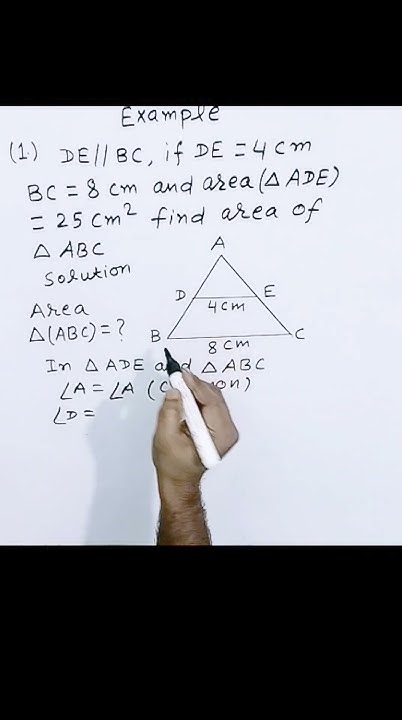 Example
(1.) DE//BC, if DE = 4 cm
BC = 8 cm and area (△ ADE)
= 25 cm² find area of
△ ABC
Solution
A
D E
4 cm
Area
△(ABC) = ?
B C
8 cm
In △ ADE and △ ABC
∠A = ∠A (
∠D =